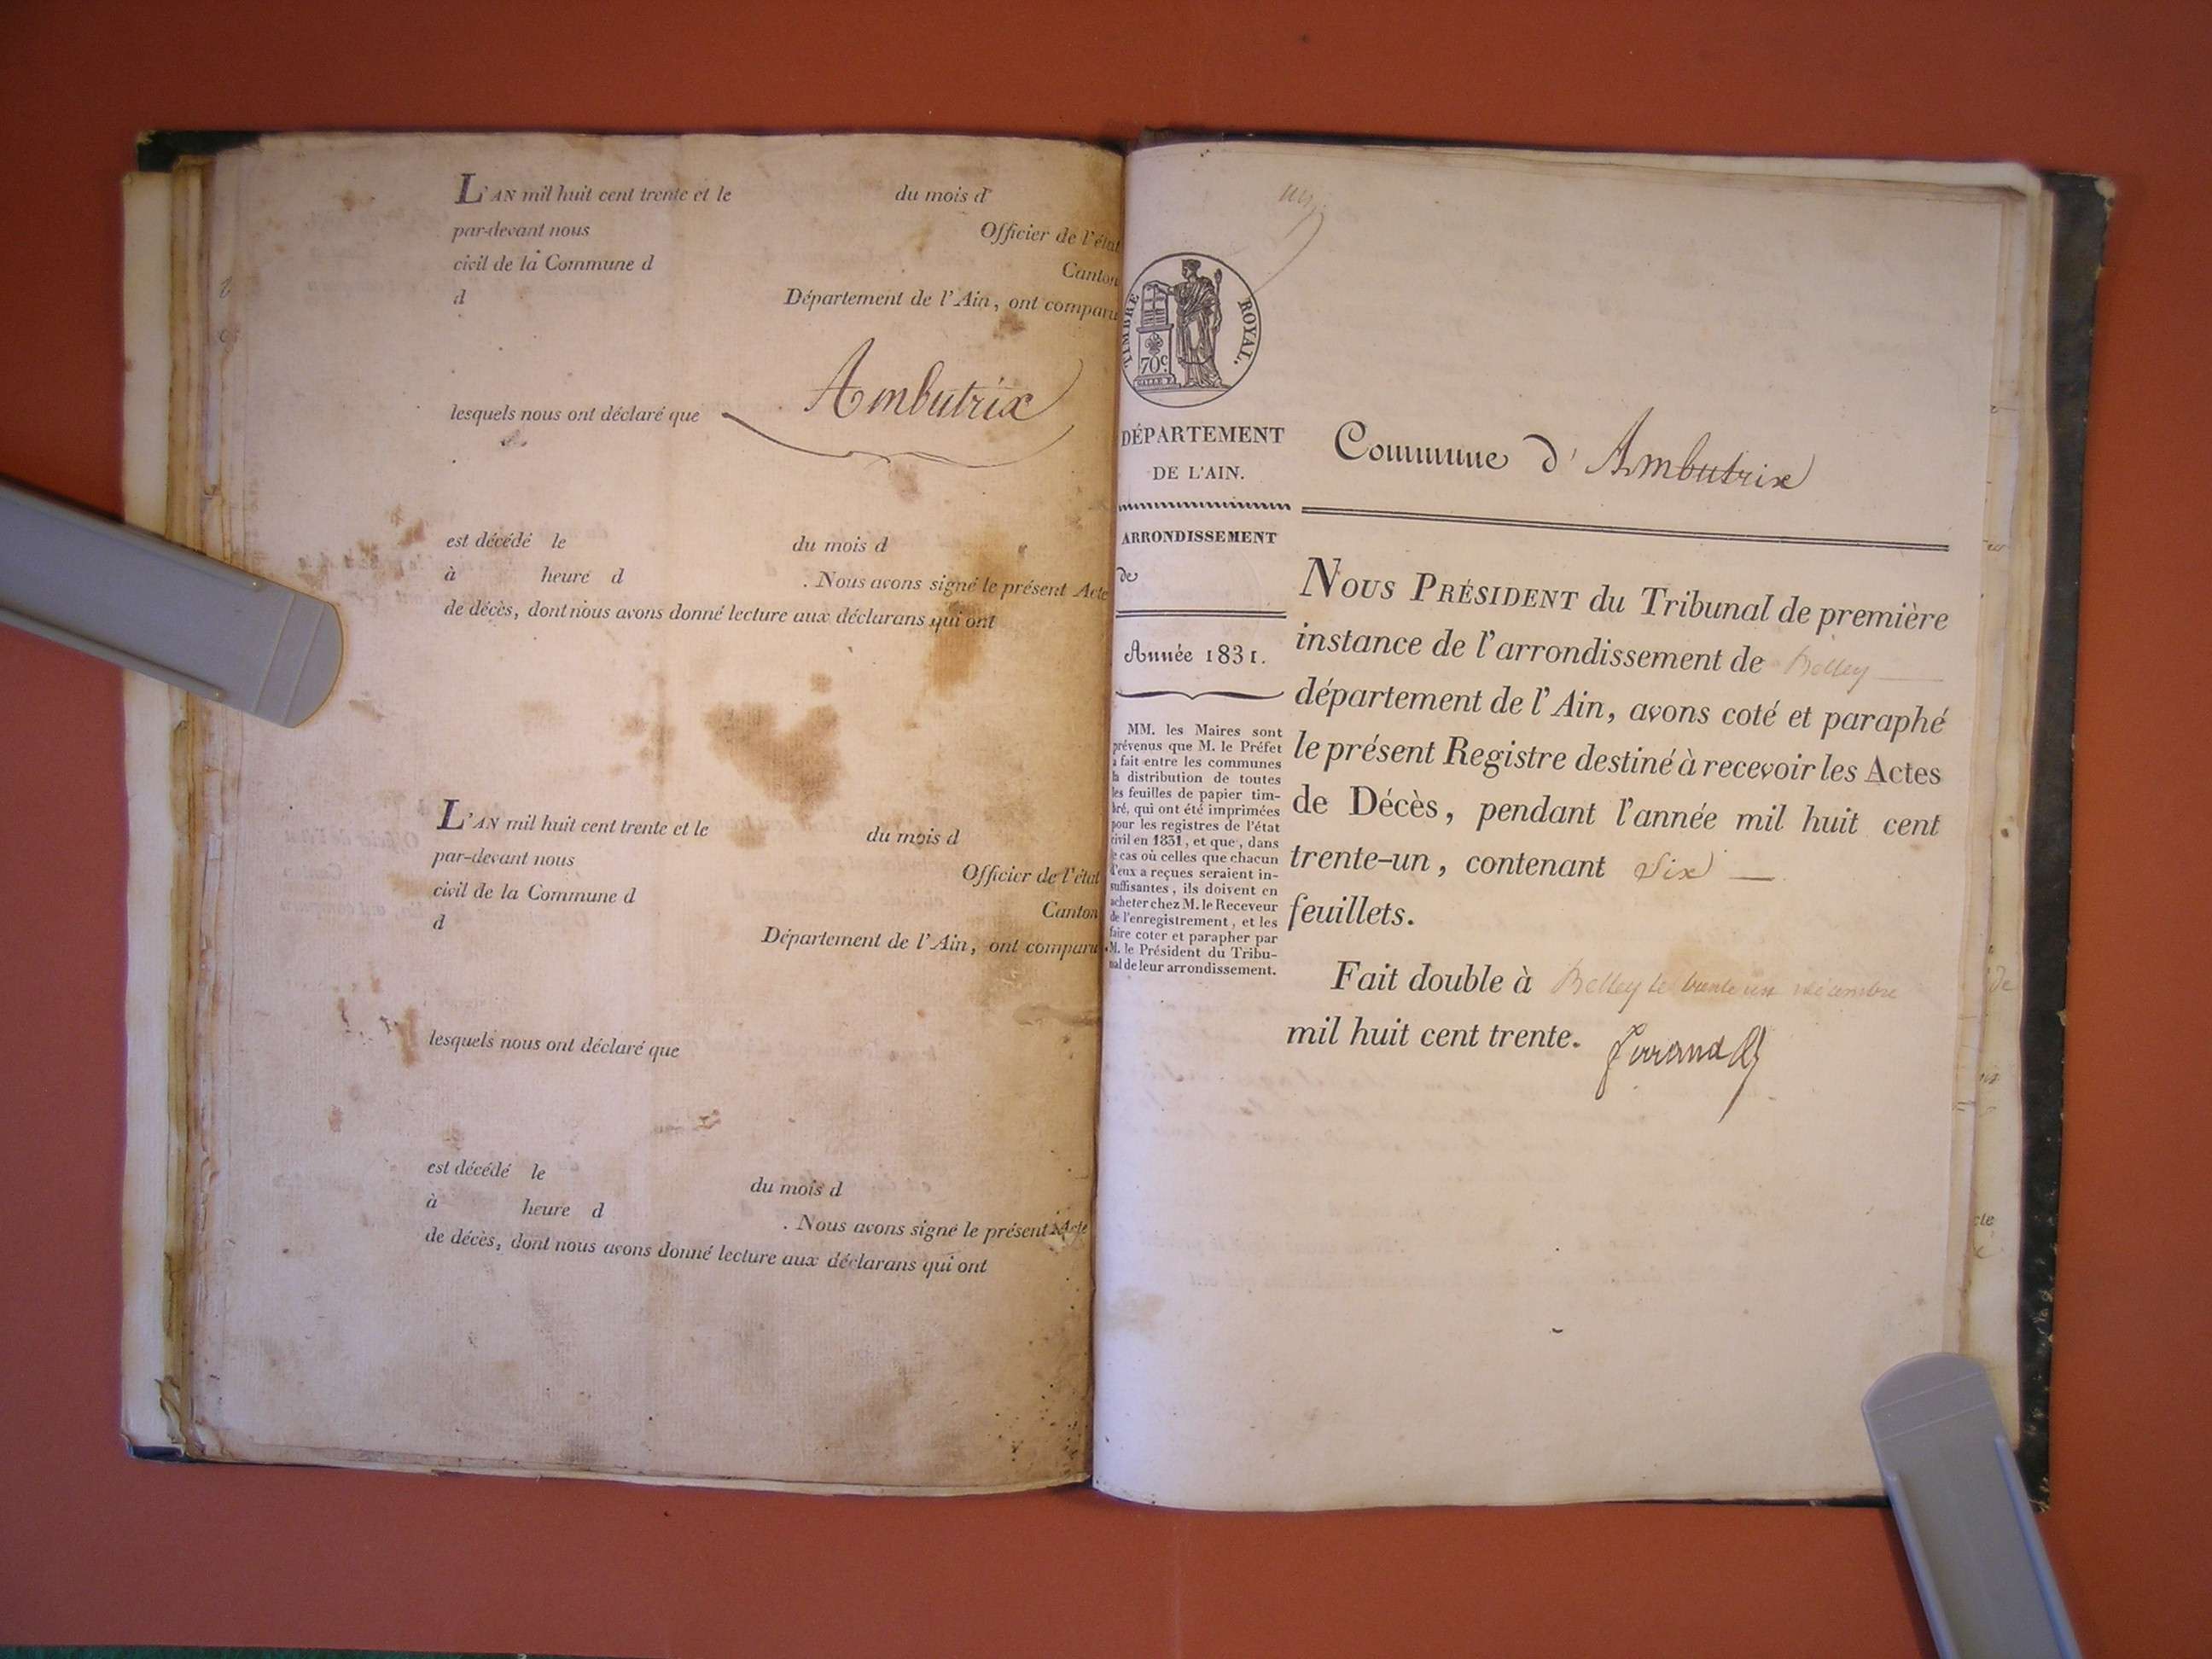 L'AN mil huit cent trente et le du mois d
par-devant nous Officier de l'état
civil de la Commune d Canton
d Département de l'Ain, ont comparu
Ambutrix
lesquels nous ont déclaré que
est décédé le du mois d
à heure d . Nous avons signé le présent Acte
de décès, dont nous avons donné lecture aux déclarans qui ont
L'AN mil huit cent trente et le du mois d
par-devant nous Officier de l'état
civil de la Commune d Canton
d Département de l'Ain, ont comparu
lesquels nous ont déclaré que
est décédé le du mois d
à heure d . Nous avons signé le présent Acte
de décès, dont nous avons donné lecture aux déclarans qui ont
un
TIMBRE ROYAL.
70c
DÉPARTEMENT
DE L'AIN.
ARRONDISSEMENT
de
Année 1831.
MM. les Maires sont
prévenus que M. le Préfet
a fait entre les communes
la distribution de toutes
les feuilles de papier tim-
bré, qui ont été imprimées
pour les registres de l'état
civil en 1831, et que, dans
le cas où celles que chacun
d'eux a reçues seraient in-
suffisantes, ils doivent en
acheter chez M. le Receveur
de l'enregistrement, et les
faire coter et parapher par
M. le Président du Tribu-
nal de leur arrondissement.
Commune d'Ambutrix
NOUS PRÉSIDENT du Tribunal de première
instance de l'arrondissement de Belley
département de l'Ain, avons coté et paraphé
le présent Registre destiné à recevoir les Actes
de Décès, pendant l'année mil huit cent
trente-un, contenant Six
feuillets.
Fait double à Belley le trente un décembre
mil huit cent trente.